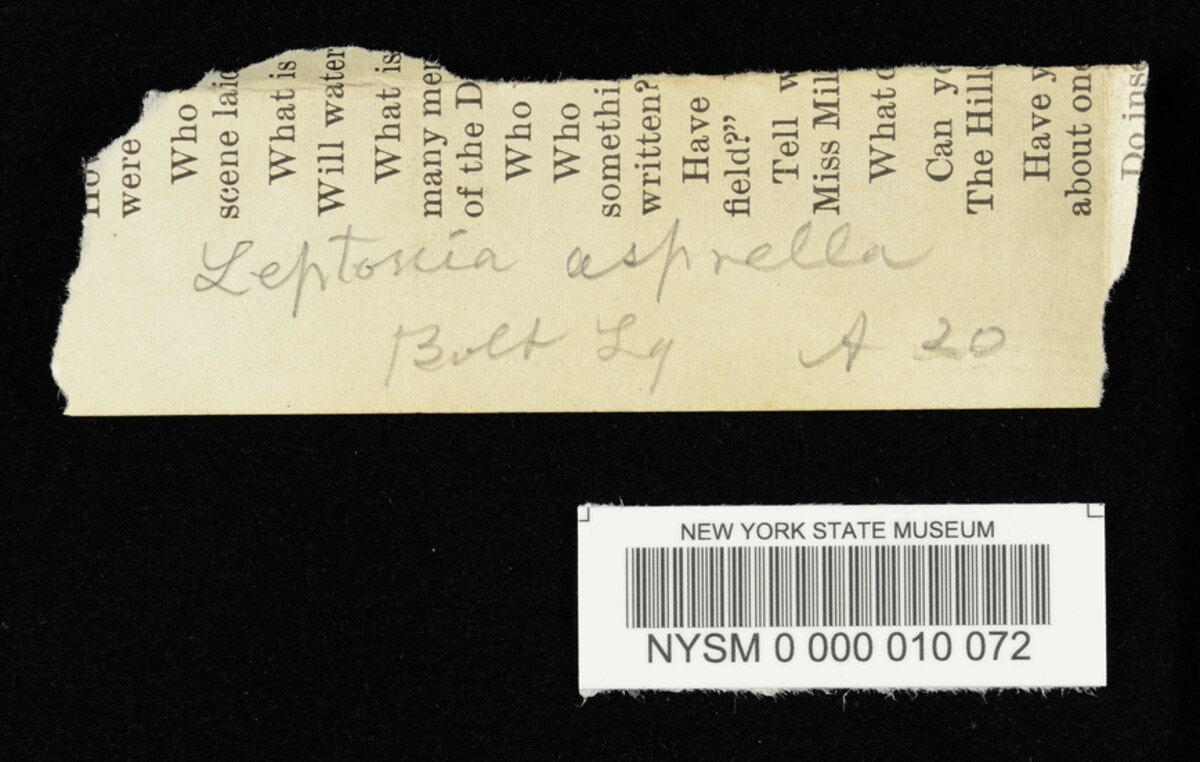 How
were
Who
scene laid
What is
Will water
What is
many men
of the D
Who
Who
somethi
written?
Have
field?"
Tell w
Miss Mil
What
Can yo
The Hill
Have y
about one
Do inse
Leptonia asprella
Bolt Lg A 20
NEW YORK STATE MUSEUM
NYSM 0 000 010 072